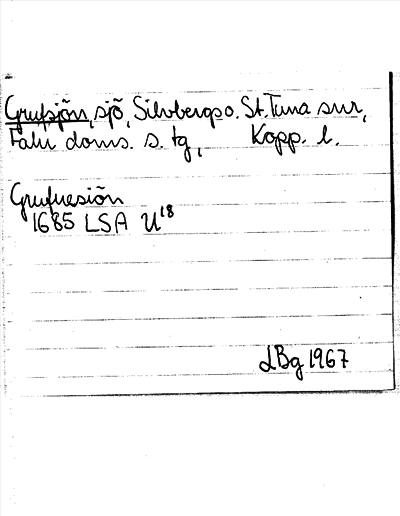 Grufsjön, sjö, Silvbergs o. St. Tuna snr,
Falu doms. s. tg, Kopp. l.
Grufuesiön
1685 LSA U18
LBg 1967